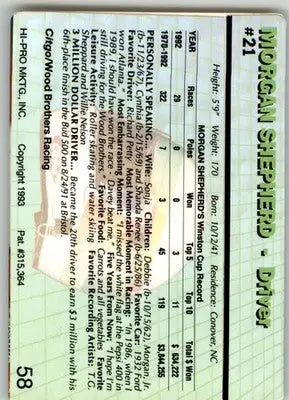 MORGAN SHEPHERD - Driver
#21
Height: 5'9" Weight: 170 Born: 10/12/41 Residence: Conover, NC
MORGAN SHEPHERD'S Winston Cup Record
YEAR Races Poles Won Top 5 Top 10 Total $ Won
1992 29 0 0 3 11 $ 634,222
1970-1992 322 7 3 45 119 $3,844,255
PERSONALLY SPEAKING Wife: Sonja Children: Debbie (b-10/15/62), Morgan, Jr.
(b-11/23/67), Cynthia (b-2/15/69) and Shanda Renee (b-6/25/86) Favorite Car: 1932 Ford
Favorite Driver: Richard Petty Most Memorable Moment in Racing: "In 1986, when I
won Atlanta." Most Embarrassing Moment: "I missed the white flag at the Pepsi 400 in
1989, I should have won the race - Davey beat me." Five Years From Now: "I hope I'm
still driving for the Wood Brothers." Favorite Food: Carrots and all vegetables
Leisure Activity: Roller skating and water skiing Favorite Recording Artists: T.G.
Sheppard and Willie Nelson
3 MILLION DOLLAR DRIVER... Became the 20th driver to earn $3 million with his
6th-place finish in the Bud 500 on 8/24/91 at Bristol.
Citgo/Wood Brothers Racing
HI-PRO MKTG., INC. Copyright 1993 Pat. #315,364 58